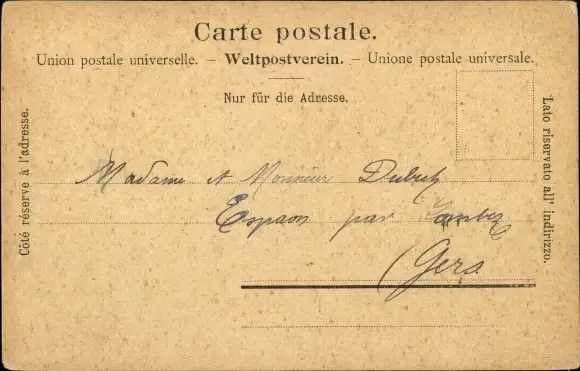 Carte postale.
Union postale universelle. — Weltpostverein. — Unione postale universale.
Nur für die Adresse.
Côté réservé à l'adresse.
Lato riservato all' indirizzo.
Madame et Monsieur
Espaon par Lombez
(Gers